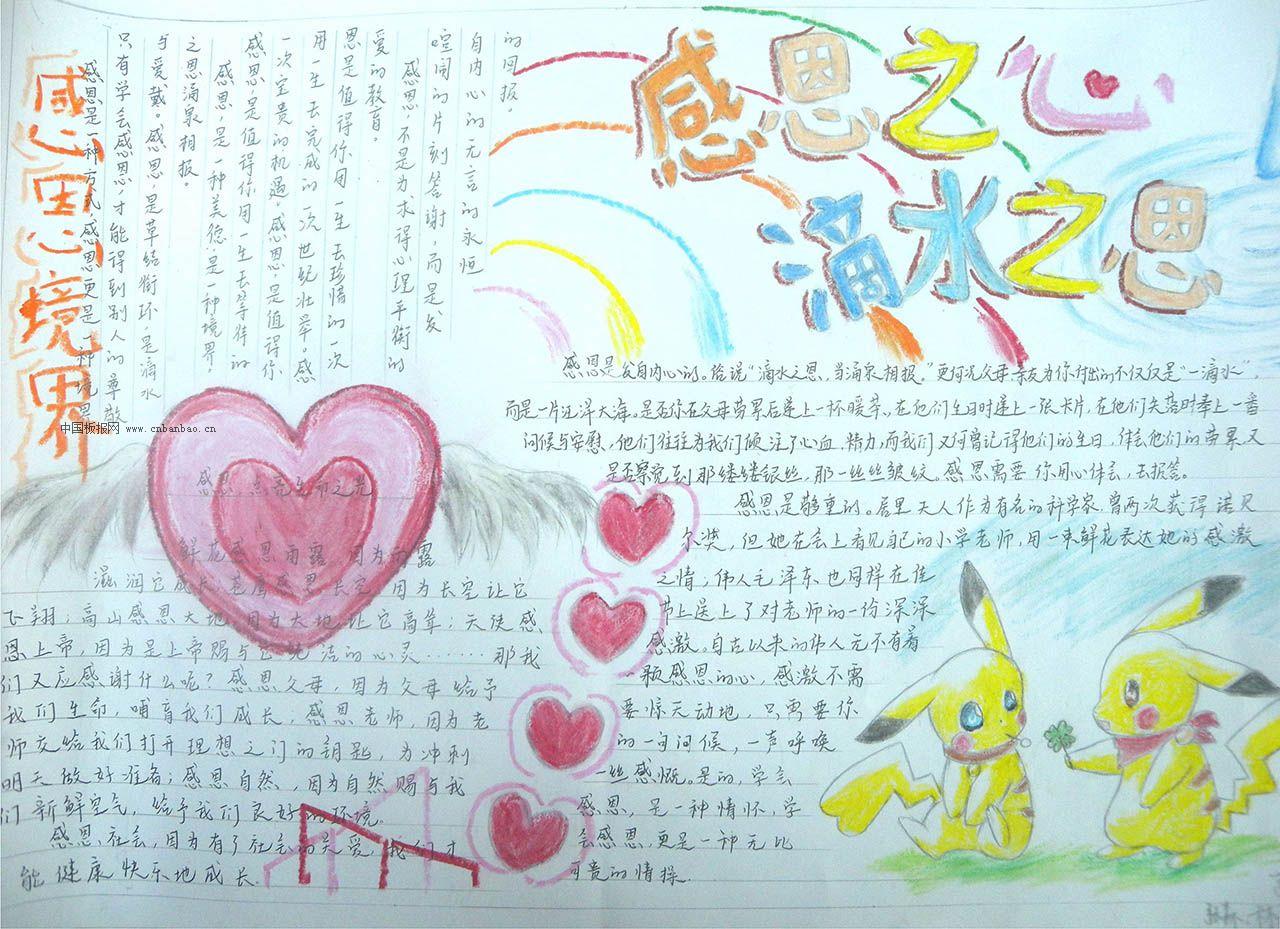 感恩之心
滴水之恩
感恩境界
感恩是一种方式感恩更是一种境界
只有学会感恩,才能得到别人的尊敬
与爱戴。感恩,是草结衔环,是滴水
之恩涌泉相报。
感恩,是一种美德,是一种境界,
感恩,是值得你用一生去等待的
一次宝贵的机遇。感恩,是值得你
用一生去完成的一次世纪壮举。感
恩是值得你用一生去珍惜的一次
爱的教育。
感恩,不是为求得心理平衡的
喧闹的片刻答谢,而是发
自内心的无言的永恒
的回报。
中国板报网 www.cnbanbao.cn
感恩是发自内心的。俗说“滴水之恩,当涌泉相报。”更何况父母,亲友为你付出的不仅仅是“一滴水”,
而是一片汪洋大海。是否你在父母劳累后递上一杯暖茶,在他们生日时递上一张卡片,在他们失落时奉上一番
问候与安慰,他们往往为我们倾注了心血、精力,而我们又何曾记得他们的生日,体会他们的劳累,又
是否察觉到那缕缕银丝,那一丝丝皱纹。感恩需要你用心体会,去报答。
感恩是敬重的。居里夫人作为有名的科学家,曾两次获得诺贝
尔奖,但她在会上看见自己的小学老师,用一束鲜花表达她的感激
之情;伟人毛泽东也同样在佳
节上送上了对老师的一份深深
感激。自古以来的伟人无不有着
一颗感恩的心,感激不需
要惊天动地,只需要你
的一句问候,一声呼唤
一丝感慨。是的,学会
感恩,是一种情怀,学
会感恩,更是一种无比
可贵的情操.
感恩 点亮生命之光
鲜花感恩雨露,因为雨露
滋润它成长;苍鹰感恩长空,因为长空让它
飞翔;高山感恩大地,因为大地让它高耸;天使感
恩上帝,因为是上帝赐与它纯洁的心灵……那我
们又应感谢什么呢?感恩父母,因为父母给予
我们生命,哺育我们成长,感恩老师,因为老
师交给我们打开理想之门的钥匙,为冲刺
明天做好准备;感恩自然,因为自然赐与我
们新鲜空气,给予我们良好的环境.
感恩社会,因为有了社会的关爱,我们才
能健康快乐地成长.